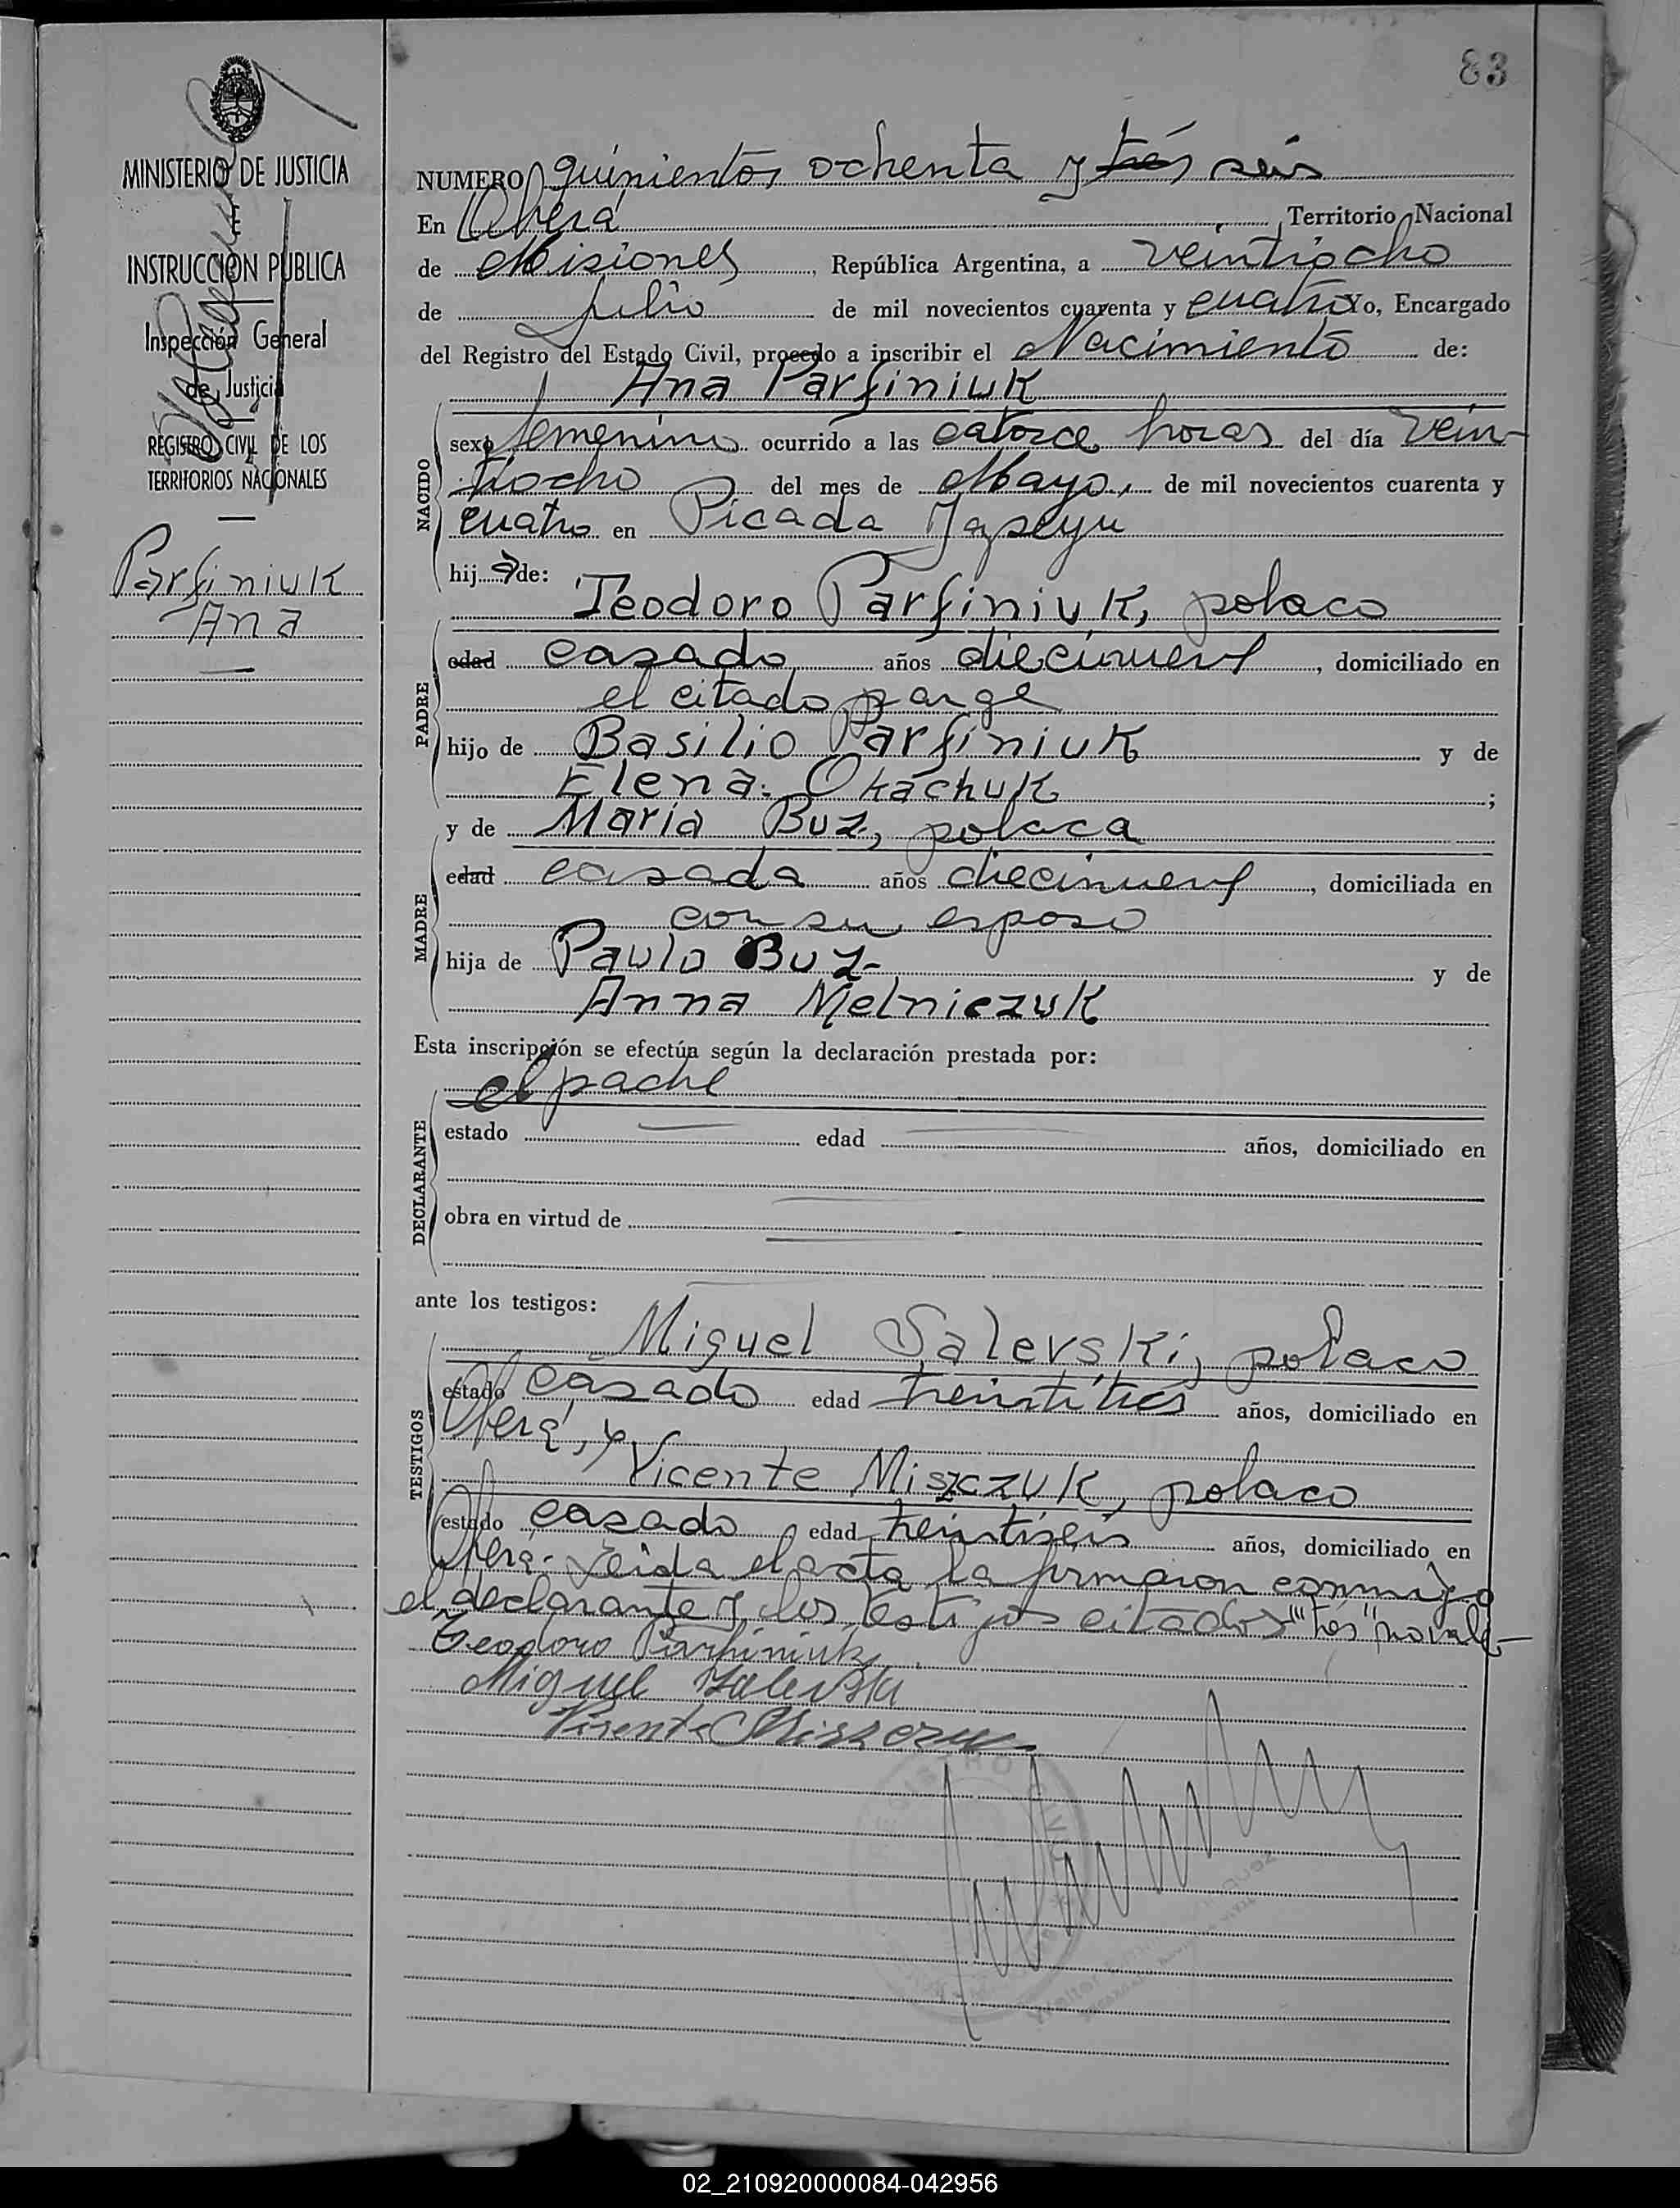 83
MINISTERIO DE JUSTICIA
INSTRUCCION PUBLICA
Inspección General
de Justicia
REGISTRO CIVIL DE LOS
TERRITORIOS NACIONALES
Parfiniuk
Ana
NUMERO quinientos ochenta y tres seis
En Oberá, Territorio Nacional
de Misiones, República Argentina, a veintiocho
de Julio de mil novecientos cuarenta y cuatro Yo, Encargado
del Registro del Estado Civil, procedo a inscribir el Nacimiento de:
Ana Parfiniuk
NACIDO
sexo femenino ocurrido a las catorce horas del día vein-
tiocho del mes de Mayo, de mil novecientos cuarenta y
cuatro en Picada Yapeyu
hij a de:
Teodoro Parfiniuk, polaco
PADRE
edad casado años diecinueve, domiciliado en
el citado parage
hijo de Basilio Parfiniuk y de
Elena Okachuk;
y de Maria Buz, polaca
MADRE
edad casada años diecinueve, domiciliada en
con su esposo
hija de Paulo Buz- y de
Anna Melniczuk
Esta inscripción se efectúa según la declaración prestada por:
el padre
DECLARANTE
estado edad años, domiciliado en
obra en virtud de
ante los testigos:
Miguel Salevski, polaco
TESTIGOS
estado casado edad treintitres años, domiciliado en
Oberá, y
Vicente Miszczuk, polaco
estado casado edad treintiseis años, domiciliado en
Oberá- Leida el acta la firmaron conmigo
el declarante y los testigos citados "tres" no vale-
Teodoro Parfiniuk
Miguel Salevski
02_210920000084-042956